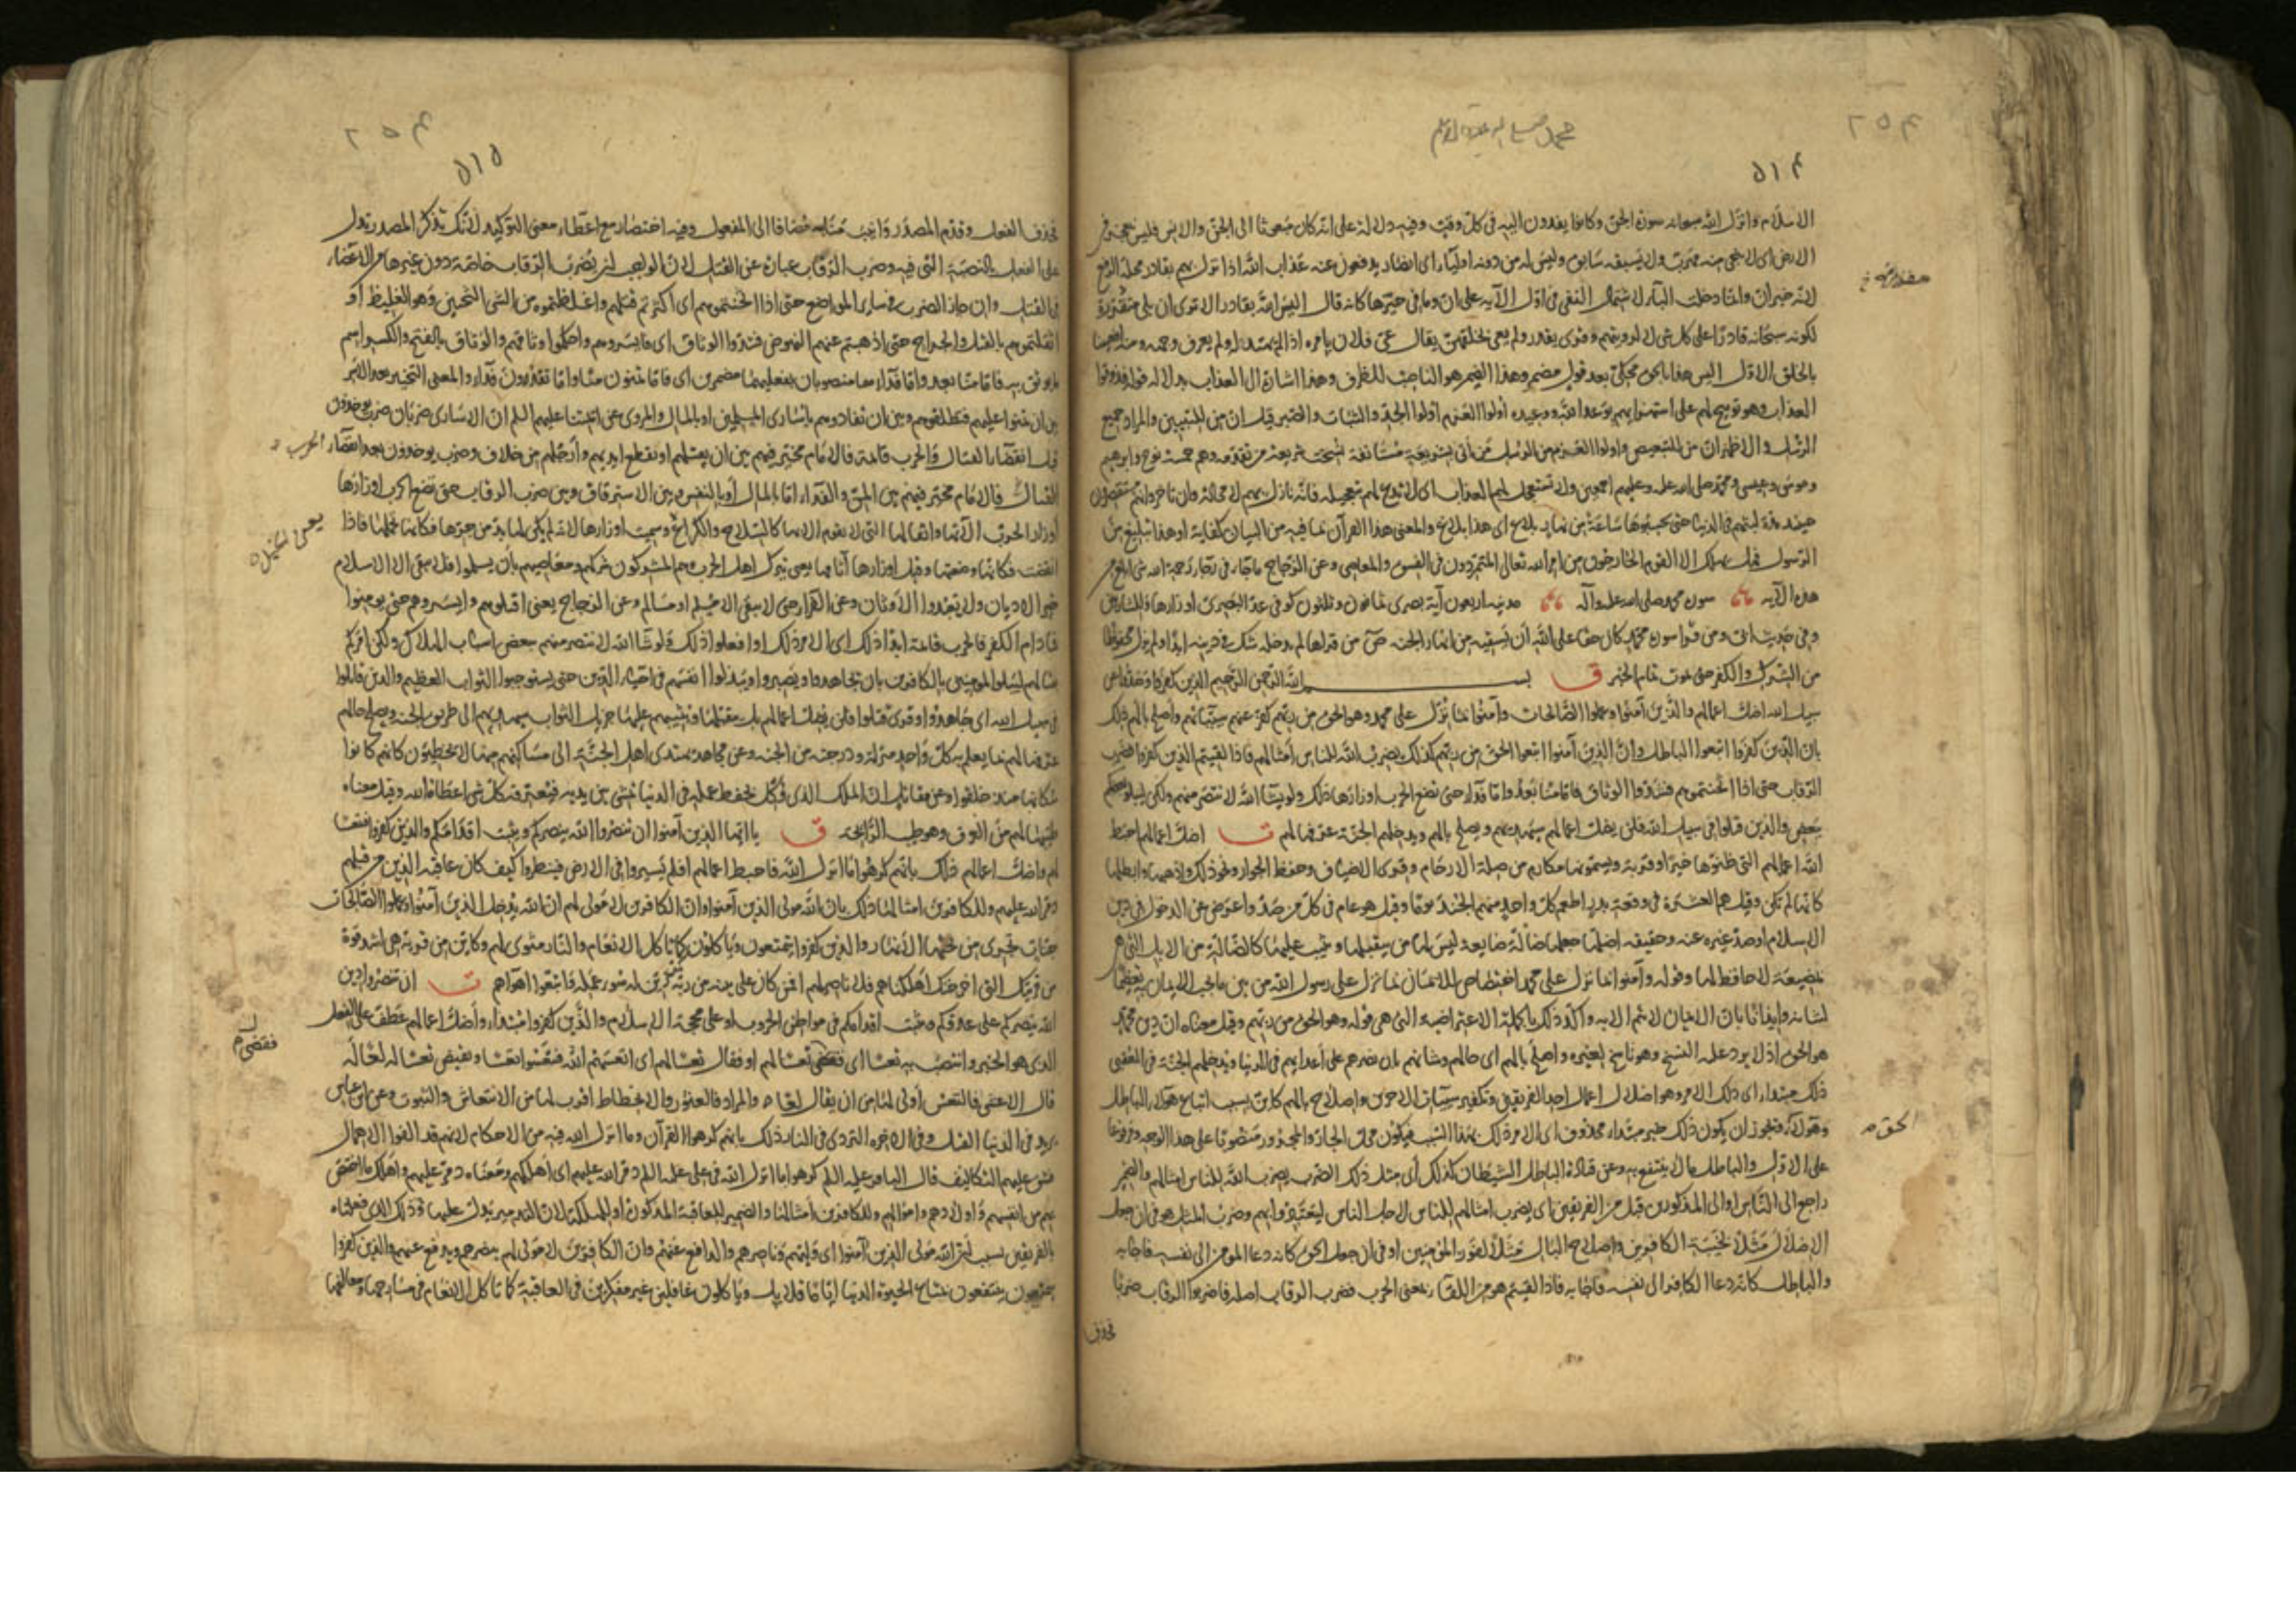 محمد صلى الله عليه وآله وسلم
٢٥٤
٥١٤
الاسلام وانزل الله سبحانه سورة الجن وكانوا يفدون اليه في كل وقت وفيه دلالة على انه كان مبعوثا الى الجن والانس فليس بمعجز في
الارض اي لا ينجي منه مهرب ولا يسبقه سابق وليس له من دونه اولياء اي انصار يدفعون عنه عذاب الله اذا نزل بهم بقادر محله الرفع
لانه خبر ان وانما دخلت الباء لاشتمال النفي في اول الآية على ان وما في حيزها كانه قال اليس الله بقادر الا ترى ان بلى مقررة
لكونه سبحانه قادرا على كل شي لا لرؤيتهم وقرئ يقدر ولم يعي بخلقهن يقال عيي فلان بامره اذا لم يهتد له ولم يعرف وجهه ومنه افعيينا
بالخلق الاول اليس هذا بالحق محكي بعد قول مضمر وهذا المضمر هو الناصب للظرف وهذا اشارة الى العذاب بدلالة قوله فذوقوا
العذاب وهو توبيخ لهم على استهزائهم بوعد الله ووعيده اولوا العزم اولوا الجد والثبات والصبر قيل ان من للتبيين والمراد جميع
الرسل والاظهر ان من للتبعيض واولوا العزم من الرسل من اتى بشريعة مستانفة نسخت شريعة من تقدمه وهم خمسة نوح وابرهيم
وموسى وعيسى ومحمد صلى الله عليه وعليهم اجمعين ولا تستعجل لهم العذاب اي لا تدع لهم بتعجيله فانه نازل بهم لا محالة وان تاخر وانهم مستقصرون
حينئذ مدة لبثهم في الدنيا حتى يحسبوها ساعة من نهار بلاغ اي هذا بلاغ والمعنى هذا القرآن بما فيه من البيان كفاية او هذا تبليغ من
الرسول فهل يهلك الا القوم الخارجون من امر الله تعالى المتمردون في الفسق والمعاصي وعن الزجاج ما جاء في رجاء رحمة الله شي ابلغ من
هذه الآية سورة محمد صلى الله عليه وآله مدنية اربعون آية بصري ثمان وثلثون كوفي عد البصري اوزارها وللشاربين
وفي حديث ابي ومن قرأ سورة محمد كان حقا على الله ان يسقيه من انهار الجنة ص من قراها لم يدخله شك في دينه ابدا ولم يزل محفوظا
من الشرك والكفر حتى يموت تمام الخبر ق بسم الله الرحمن الرحيم الذين كفروا وصدوا عن
سبيل الله اضل اعمالهم والذين آمنوا وعملوا الصالحات وآمنوا بما نزل على محمد وهو الحق من ربهم كفر عنهم سيئاتهم واصلح بالهم ذلك
بان الذين كفروا اتبعوا الباطل وان الذين آمنوا اتبعوا الحق من ربهم كذلك يضرب الله للناس امثالهم فاذا لقيتم الذين كفروا فضرب
الرقاب حتى اذا اثخنتموهم فشدوا الوثاق فاما منا بعد واما فداء حتى تضع الحرب اوزارها ذلك ولو يشاء الله لانتصر منهم ولكن ليبلو بعضكم
ببعض والذين قتلوا في سبيل الله فلن يضل اعمالهم سيهديهم ويصلح بالهم ويدخلهم الجنة عرفها لهم ت اضل اعمالهم احبط
الله اعمالهم التي ظنوها خيرا وقربة ويسمونها مكارم من صلة الارحام وقرى الاضياف وحفظ الجوار ونحو ذلك واذهبها وابطلها
كانها لم تكن وقيل هم العشرة في وقعة بدر اطعم كل واحد منهم الجند يوما وقيل هو عام في كل من صد واعرض عن الدخول في دين
الاسلام او صد غيره عنه وحقيقته اضلها جعلها ضالة ضايعة ليس لها من يتقبلها ويثيب عليها كالضالة من الابل التي هي
بمضيعة لا حافظ لها وقوله وآمنوا بما نزل على محمد اختصاص للايمان بما نزل على رسول الله من بين ما يجب الايمان به تعظيما
لشانه وايذانا بان الايمان لا يتم الا به واكد ذلك بالجملة الاعتراضية التي هي قوله وهو الحق من ربهم وقيل معناه ان دين محمد
هو الحق اذ لا يرد عليه النسخ وهو ناسخ لغيره واصلح بالهم اي حالهم وشانهم بان نصرهم على اعدايهم في الدنيا ويدخلهم الجنة في العقبى
ذلك مبتداء اي ذلك الامر وهو اضلال اعمال احد الفريقين وتكفير سيئات الآخرين واصلاح بالهم كائن بسبب اتباع هؤلاء الباطل
وهؤلاء ويجوز ان يكون ذلك خبر مبتداء محذوف اي الامر ذلك بهذا السبب فيكون محل الجار والمجرور منصوبا على هذا الوجه ومرفوعا
على الاول والباطل ما لا ينتفع به وعن قتادة الباطل الشيطان كذلك اي مثل ذلك الضرب يضرب الله للناس امثالهم والضمير
راجع الى الناس او الى المذكورين قبل من الفريقين اي يضرب امثالهم للناس لاجل الناس ليعتبروا بهم وضرب المثل هو في ان جعل
الاضلال مثلا لخيبة الكافرين واصلاح البال مثلا لفوز المؤمنين او في ان جعل الحق كانه دعا المؤمن الى نفسه فاجابه
والباطل كانه دعا الكافر الى نفسه فاجابه فاذا لقيتم هو من اللقاء بمعنى الحرب فضرب الرقاب اصله فاضربوا الرقاب ضربا
الحق م
فحذف
٢٥٤
٥١٥
فحذف الفعل وقدم المصدر وانيب منابه مضافا الى المفعول وفيه اختصار مع اعطاء معنى التوكيد لانك تذكر المصدر وتدل
على الفعل بالنصبة التي فيه وضرب الرقاب عبارة عن القتل لان الواجب ان يضرب الرقاب خاصة دون غيرها من الاعضاء
في القتل وان جاز الضرب في ساير المواضع حتى اذا اثخنتموهم اي اكثرتم قتلهم واغلظتموه من الشي الثخين وهو الغليظ او
اثقلتموهم بالقتل والجراح حتى اذهبتم عنهم النهوض فشدوا الوثاق اي فايسروهم واحكموا وثاقهم والوثاق بالفتح والكسر اسم
ما يوثق به فاما منا بعد واما فداء هما منصوبان بفعليهما مضمرين اي فاما تمنون منا واما تفدون فداء والمعنى التخيير بعد الاسر
بين ان يمنوا عليهم فيطلقوهم وبين ان يفادوهم باسارى المسلمين او بالمال والمروي عن ائمتنا عليهم السلم ان الاسارى ضربان ضرب يوخذون
قبل انقضاء القتال والحرب قائمة فالامام مخير فيهم بين ان يقتلهم او يقطع ايديهم وارجلهم من خلاف وضرب يوخذون بعد انقضاء
القتال فالامام مخير فيهم بين المن والفداء اما بالمال او بالنفس وبين الاسترقاق وبين ضرب الرقاب حتى تضع الحرب اوزارها
اوزار الحرب آلاتها واثقالها التي لا تقوم الا بها كالسلاح والكراع وسميت اوزارها لانه لما لم يكن لها بد من جرها فكانها تحملها فاذا
انقضت فكانها وضعتها وقيل اوزارها آثامها يعني يترك اهل الحرب وهم المشركون شركهم ومعاصيهم بان يسلموا فلا يبقى الا الاسلام
خير الاديان ولا يعبدوا الاوثان وعن الفراء حتى لا يبقى الا مسلم او مسالم وعن الزجاج يعني اقتلوهم وايسروهم حتى يومنوا
فما دام الكفر فالحرب قائمة ابدا ذلك اي الامر ذلك او افعلوا ذلك ولو شاء الله لانتصر منهم ببعض اسباب الهلاك ولكن امركم
بقتالهم ليبلوا المومنين بالكافرين بان يجاهدوا ويصبروا ويبذلوا انفسهم في احياء الدين حتى يستوجبوا الثواب العظيم والذين قاتلوا
في سبيل الله اي جاهدوا وقرئ قتلوا فلن يضل اعمالهم بل يتقبلها ويثيبهم عليها جزيل الثواب سيهديهم الى طريق الجنة ويصلح حالهم
عرفها لهم بما يعلم به كل واحد منزلته ودرجته من الجنة وعن مجاهد يهتدي اهل الجنة الى مساكنهم منها لا يخطئون كانهم كانوا
سكانها منذ خلقوا وعن مقاتل ان الملك الذي وكل بحفظ عمله في الدنيا يمشي بين يديه فيعرفه كل شي اعطاه الله وقيل معناه
طيبها لهم من العرف وهو طيب الرائحة ق يا ايها الذين آمنوا ان تنصروا الله ينصركم ويثبت اقدامكم والذين كفروا فتعسا
لهم واضل اعمالهم ذلك بانهم كرهوا ما انزل الله فاحبط اعمالهم افلم يسيروا في الارض فينظروا كيف كان عاقبة الذين من قبلهم
دمر الله عليهم وللكافرين امثالها ذلك بان الله مولى الذين آمنوا وان الكافرين لا مولى لهم ان الله يدخل الذين آمنوا وعملوا الصالحات
جنات تجري من تحتها الانهار والذين كفروا يتمتعون وياكلون كما تاكل الانعام والنار مثوى لهم وكاين من قرية هي اشد قوة
من قريتك التي اخرجتك اهلكناهم فلا ناصر لهم افمن كان على بينة من ربه كمن زين له سوء عمله واتبعوا اهواءهم ت ان تنصروا دين
الله ينصركم على عدوكم ويثبت اقدامكم في مواطن الحروب او على محجة الاسلام والذين كفروا مبتداء واضل اعمالهم عطف على الفعل
الذي هو الخبر وانتصب به تعسا اي فقضى تعسا لهم او فقال تعسا لهم اي اتعسهم الله فتعسوا تعسا ونقيض تعسا له لعا له
قال الاعشى فالتعس اولى لها من ان يقال لعا والمراد فالعثور والانحطاط اقرب لها من الانتعاش والثبوت وعن ابن عباس
يريد في الدنيا القتل وفي الآخرة التردي في النار ذلك بانهم كرهوا القرآن وما انزل الله فيه من الاحكام لانهم قد الفوا الاهمال
فشق عليهم التكاليف قال الباقر عليه السلم كرهوا ما انزل الله في علي عليه السلم دمر الله عليهم اي اهلكهم ومعناه دمر عليهم واهلك ما اختص
بهم من انفسهم واولادهم واموالهم وللكافرين امثالها والضمير للعاقبة المذكورة او للهلكة لان التدمير يدل عليها وذلك الذي فعلناه
بالفريقين بسبب ان الله مولى الذين آمنوا اي وليهم وناصرهم والدافع عنهم وان الكافرين لا مولى لهم ينصرهم ويدفع عنهم والذين كفروا
يتمتعون ينتفعون بمتاع الحيوة الدنيا اياما قلايل وياكلون غافلين غير مفكرين في العاقبة كما تاكل الانعام في مسارحها ومعالفها
الحرب
يعني الخيل
فقضى م